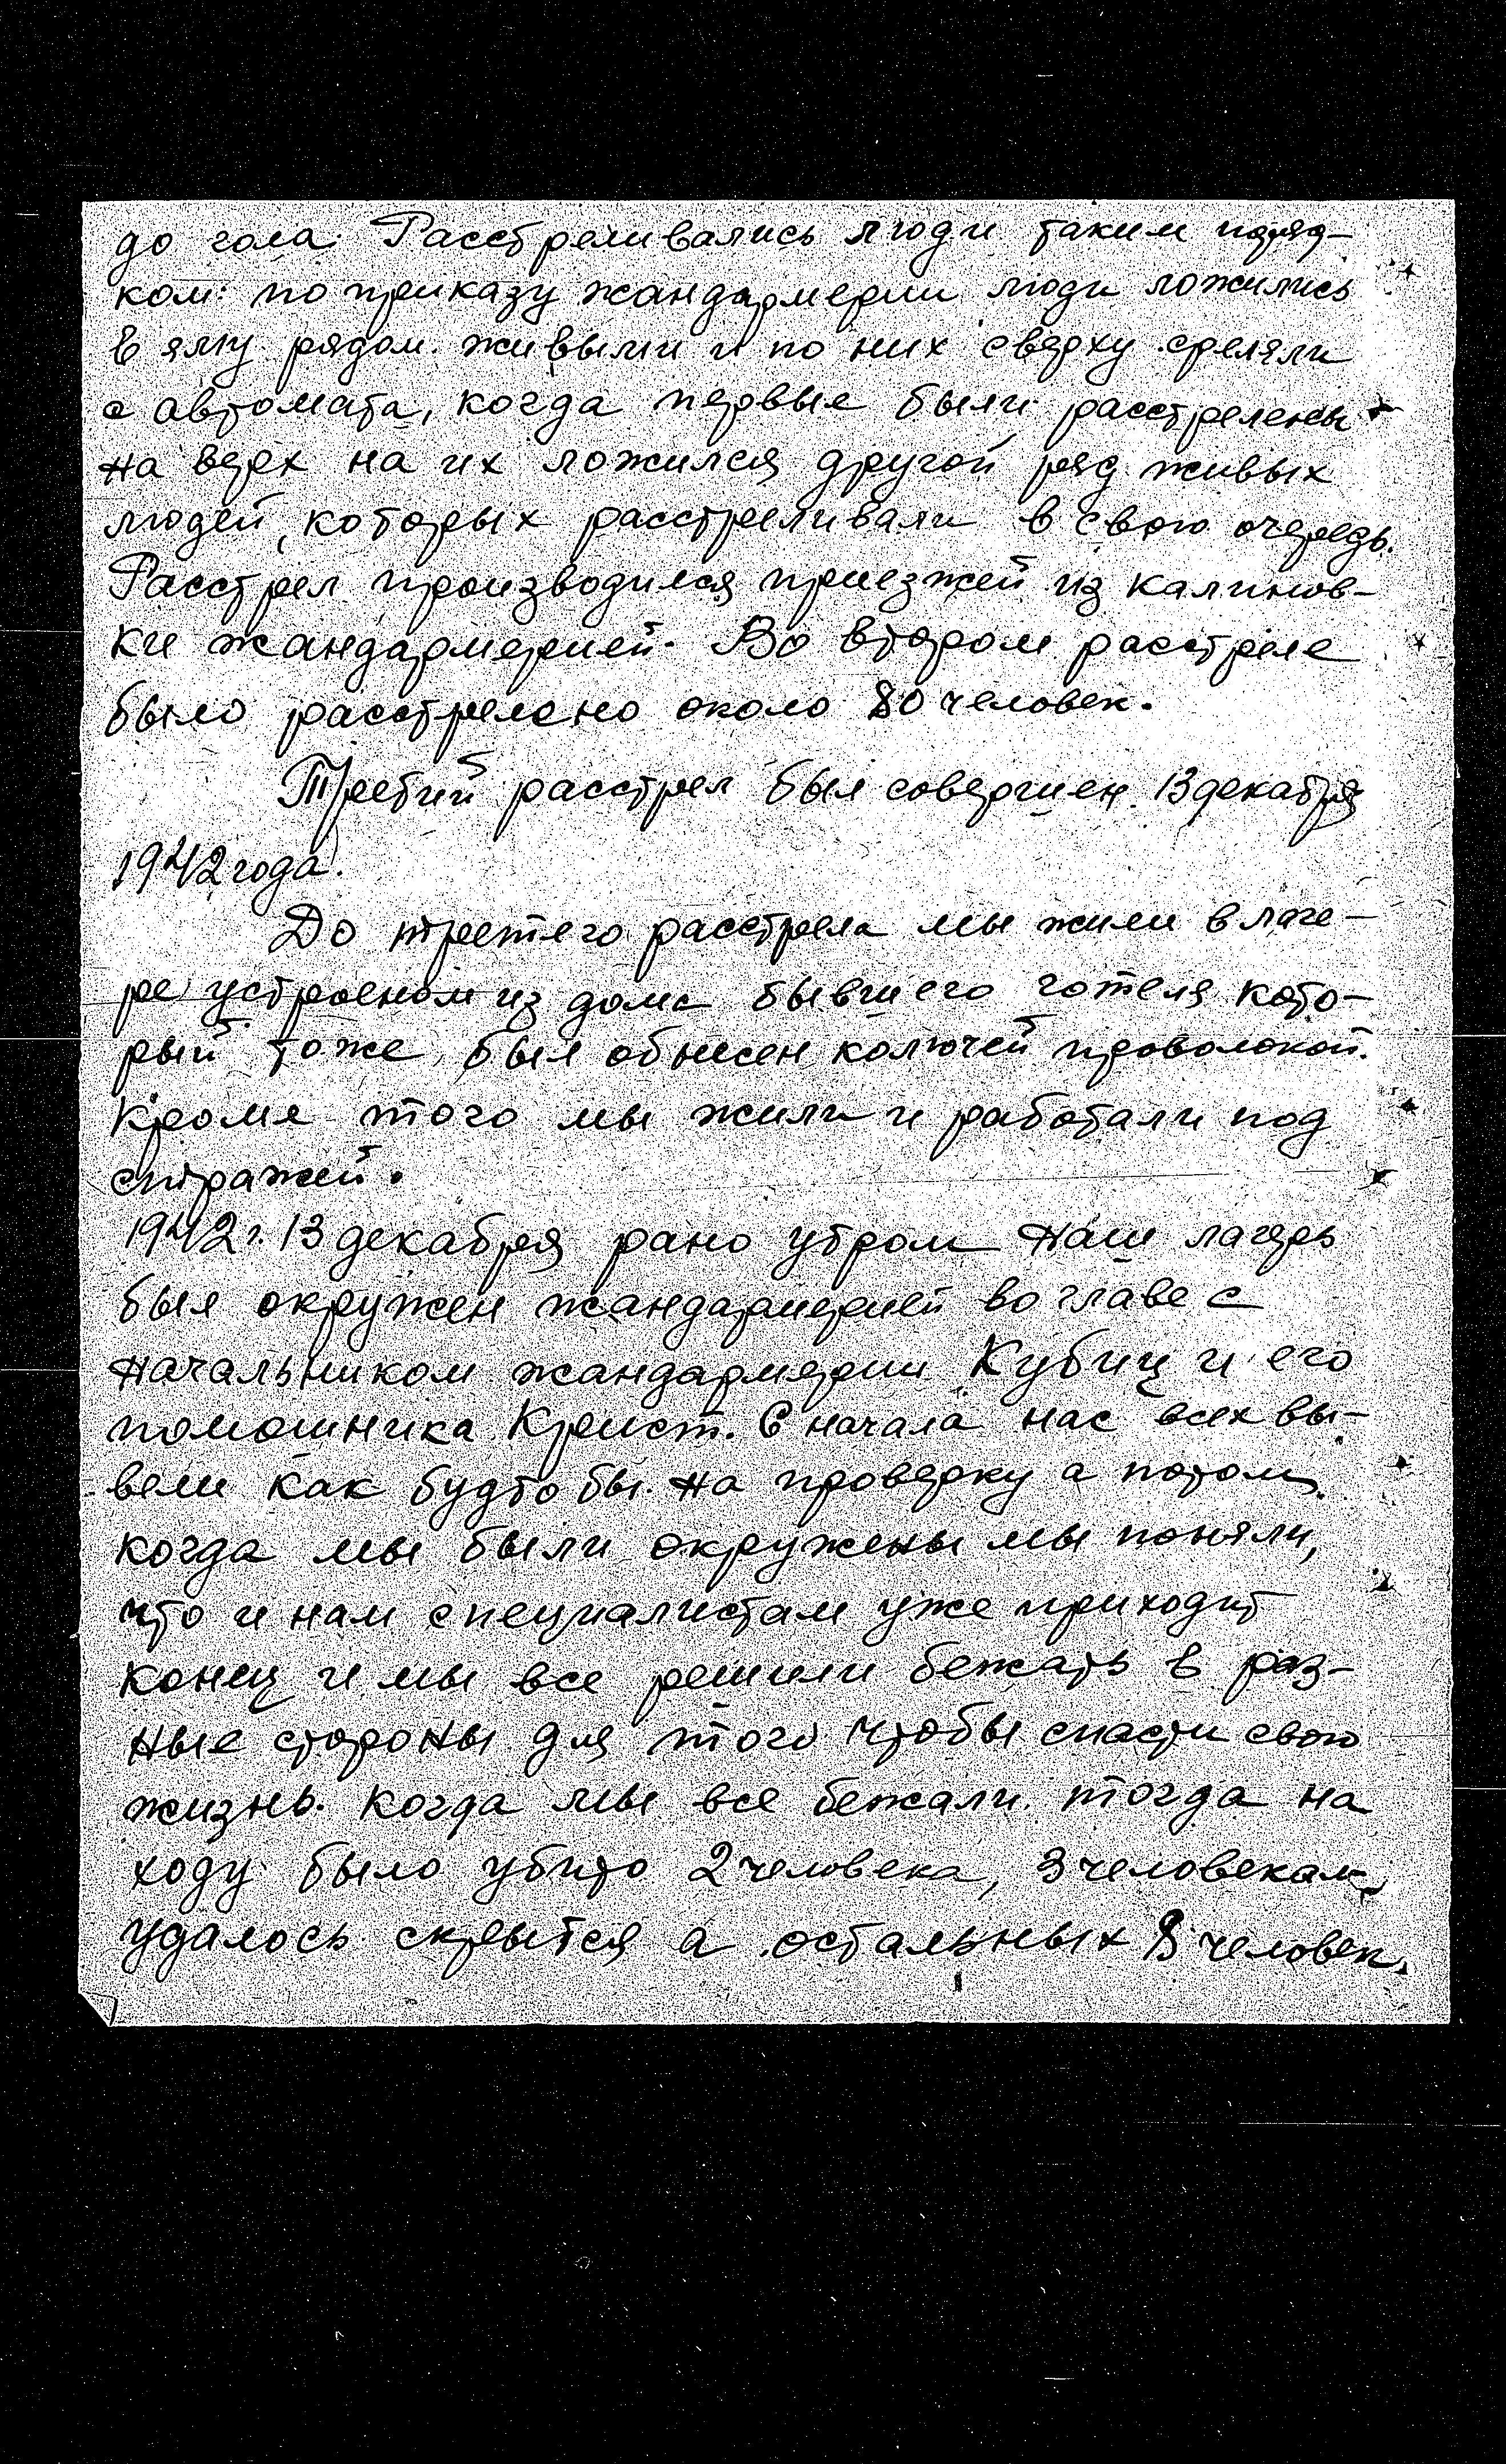 до гола. Расстреливались люди таким поряд-
ком: по приказу жандармерии люди ложились
в яму рядом живыми и по них сверху среляли
с автомата, когда первые были расстрелены
на верх на их ложился другой ряд живых
людей, которых расстреливали в свою очередь.
Расстрел производился приезжей из Калинов-
ки жандармерией. Во втором расстреле
было расстрелено около 80 человек.
Третий расстрел был совершен 13 декабря
1942 года.
До третего расстрела мы жили в лаге-
ре устроеном из дома бывшего готеля кото-
рый тоже был обнесен колючей проволокой.
Кроме того мы жили и работали под
стражей.
1942 г. 13 декабря рано утром наш лагерь
был окружен жандармерией во главе с
начальником жандармерии Кубиц и его
помошника Крист. С начала нас всех вы-
вели как будто бы на проверку а потом
когда мы были окружены мы поняли,
что и нам специалистам уже приходит
конец и мы все решили бежать в раз-
ные стороны для того чтобы спасти свою
жизнь. Когда мы все бежали тогда на
ходу было убито 2 человека, 3 человекам
удалось скрытся а остальных 8 человек.